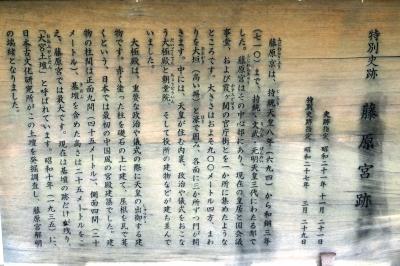 特別史跡 藤原宮跡
史跡指定 昭和二十一年十一月二十一日
特別史跡指定 昭和二十七年 三月二十九日
藤原京は、持統天皇八年(六九四)から和銅三年
(七一〇)まで、持統、文武、元明天皇三代にわたる都で
した。藤原宮はその中心部にあり、現在の皇居と国会議
事堂、および霞ヶ関の官庁街とを一か所に集めたような
ところです。大きさはおよそ九〇〇メートル四方、まわ
りを大垣(高い塀)と濠で囲み、各面に三か所ずつ門が開
きます。中には、天皇が住む内裏、政治や儀式をおこな
う大極殿と朝堂院、そして役所の建物などが建ち並んで
いました。
大極殿は、重要な政治や儀式の際に天皇の出御する建
物です。赤く塗った柱を礎石の上に建て、屋根を瓦で葺
くという、日本では最初の中国風の宮殿建築でした。建
物の柱間は正面九間(四十五メートル)、側面四間(二十
メートル)、基壇を含めた高さは二十五メートルを
こえ、藤原宮では最大です。現在は基壇の跡だけが残り、
「大宮土壇」と呼ばれています。昭和十年(一九三五)に、
日本古文化研究所がこの土壇を発掘調査し、藤原宮解明
の端緒となりました。